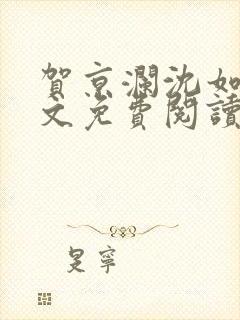 賀京瀾沈如
文免費閱讀
是寧